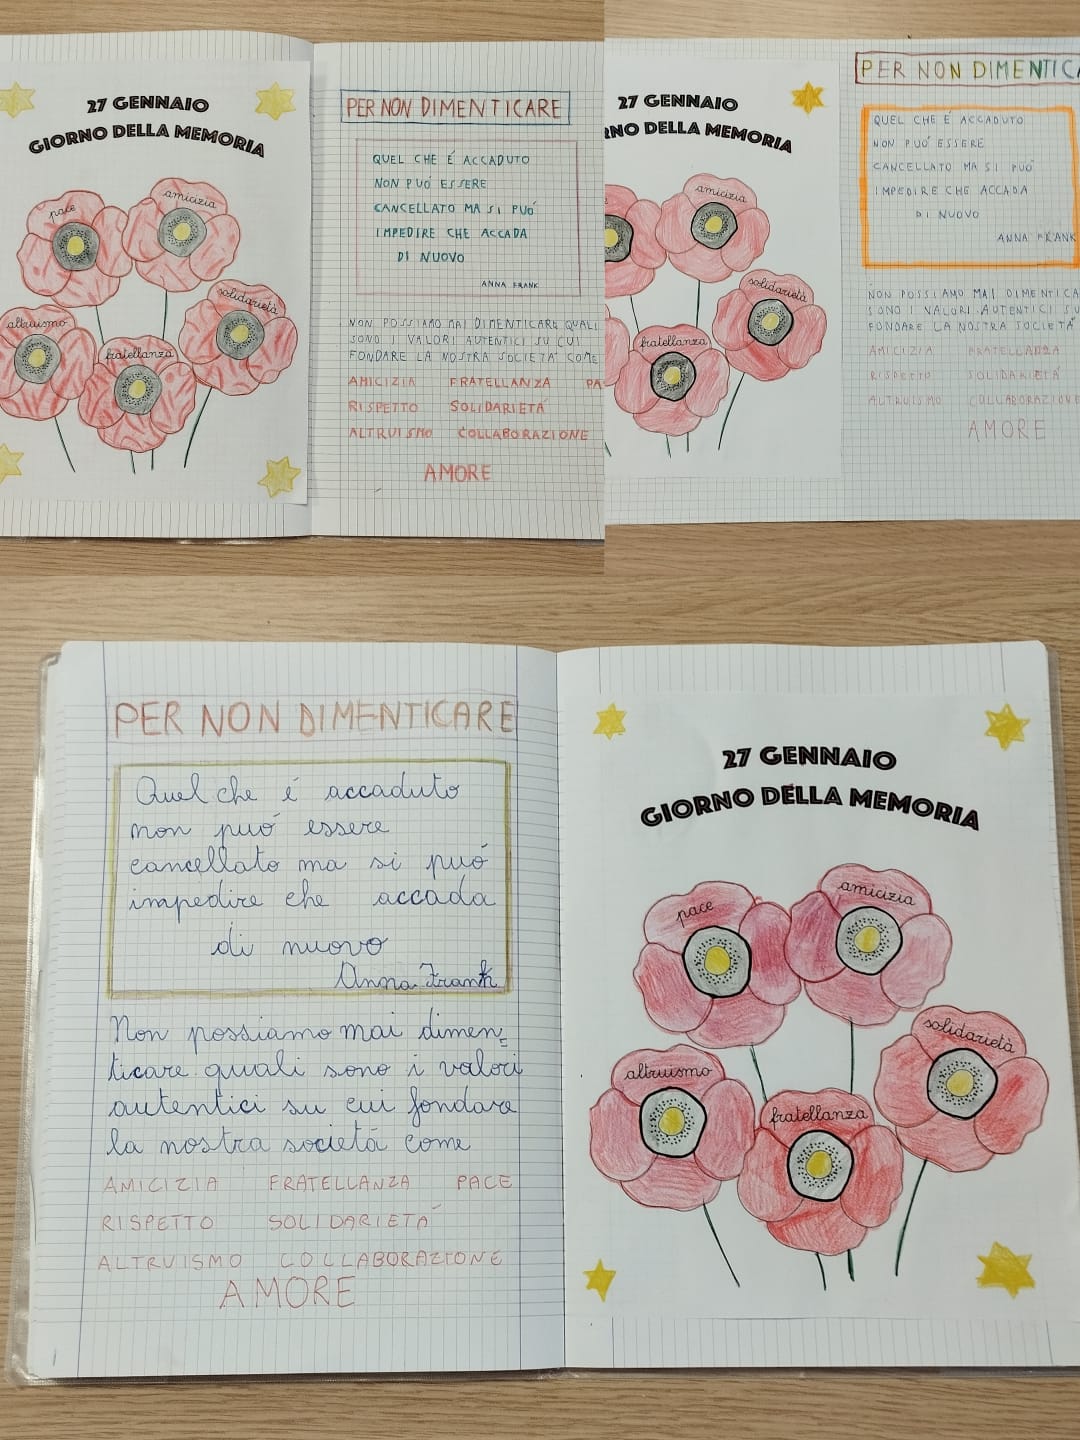 27 GENNAIO
GIORNO DELLA MEMORIA
pace
amicizia
solidarietà
altruismo
fratellanza
PER NON DIMENTICARE
QUEL CHE É ACCADUTO
NON PUÓ ESSERE
CANCELLATO MA SI PUÓ
IMPEDIRE CHE ACCADA
DI NUOVO
ANNA FRANK
NON POSSIAMO MAI DIMENTICARE QUALI
SONO I VALORI AUTENTICI SU CUI
FONDARE LA NOSTRA SOCIETÁ COME
AMICIZIA FRATELLANZA PA
RISPETTO SOLIDARIETÁ
ALTRUISMO COLLABORAZIONE
AMORE
27 GENNAIO
RNO DELLA MEMORIA
amicizia
solidarietà
fratellanza
PER NON DIMENTICA
QUEL CHE É ACCADUTO
NON PUÓ ESSERE
CANCELLATO MA SI PUÓ
IMPEDIRE CHE ACCADA
DI NUOVO
ANNA FRANK
NON POSSIAMO MAI DIMENTICA
SONO I VALORI AUTENTICI SU
FONDARE LA NOSTRA SOCIETÁ
AMICIZIA FRATELLANZA
RISPETTO SOLIDARIETÁ
ALTRUISMO COLLABORAZIONE
AMORE
PER NON DIMENTICARE
Quel che é accaduto
non puó essere
cancellato ma si puó
impedire che accada
di nuovo
Anna Frank
Non possiamo mai dimen=
ticare quali sono i valori
autentici su cui fondare
la nostra societá come
AMICIZIA FRATELLANZA PACE
RISPETTO SOLIDARIETÁ
ALTRUISMO COLLABORAZIONE
AMORE
27 GENNAIO
GIORNO DELLA MEMORIA
pace
amicizia
solidarietà
altruismo
fratellanza